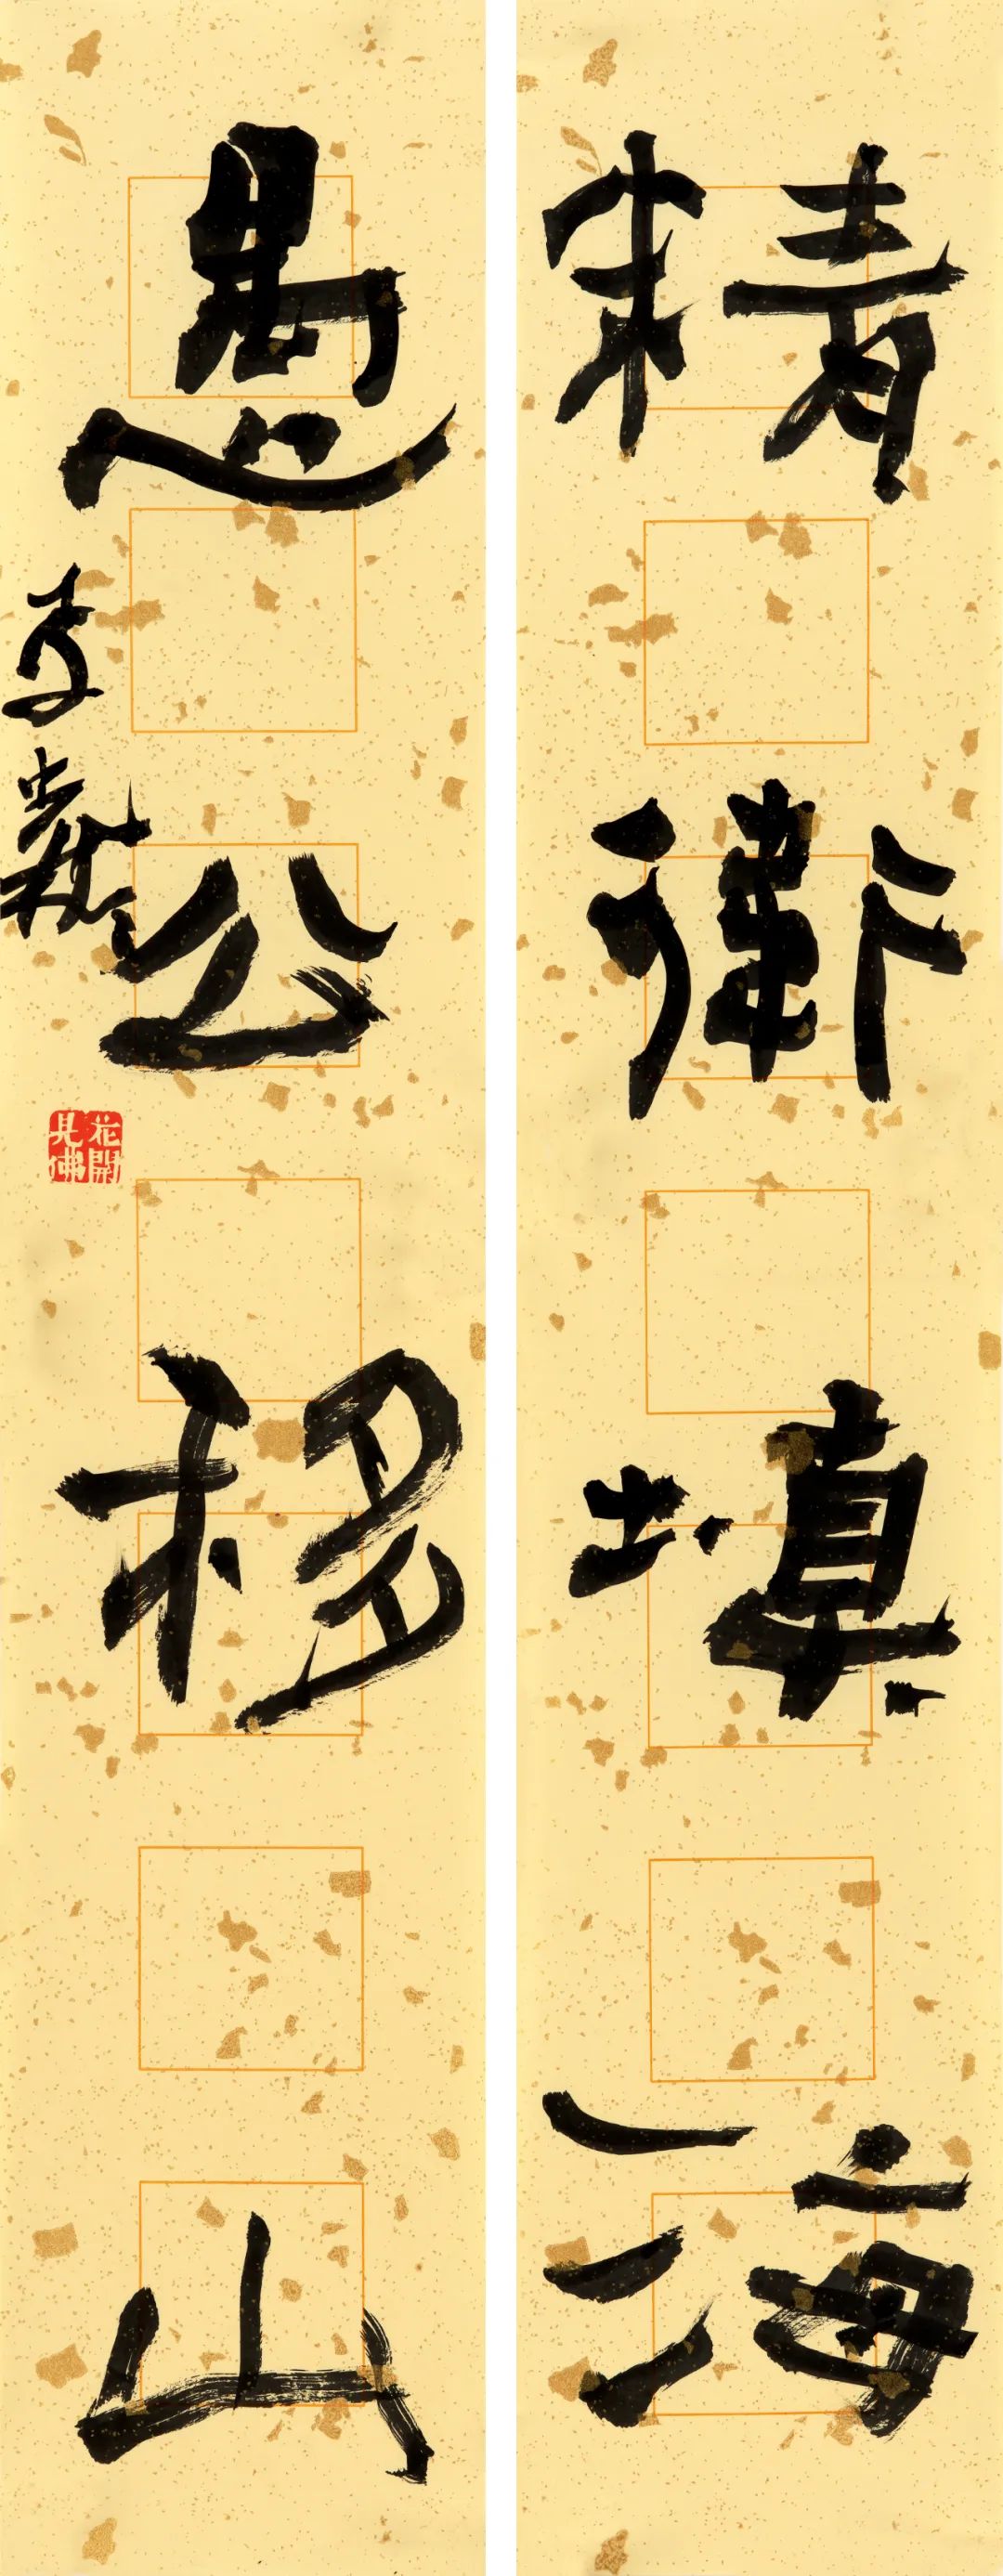 精衛填海
愚公移山
花開見佛